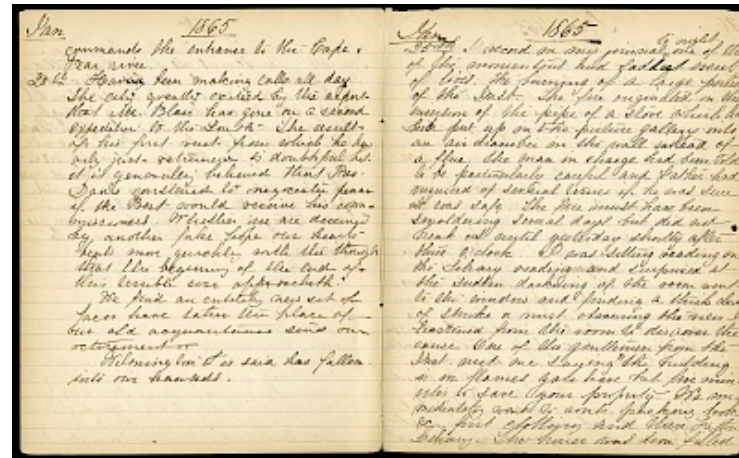 Jan 1865
commands the entrance to the Cape
Fear river.
20th Have been making calls all day
The city greatly excited by the report
that Mr. Blair has gone on a second
expedition to the South - The result
of his first visit from which he has
only just returned is doubtful but
it is generally believed that
Davis consented to negotiate
if the Pres would receive his com-
missioners. Whether we are deceived
by another false hope our hearts
beats more quickly with the thought
that the beginning of the end of
this terrible war approacheth.
We find an entirely new set of
faces have taken the place of
our old acquaintances since our
retirement
Wilmington it is said has fallen
into our hands.
Jan 1865
25th I record in my journal to night one of the
of this momentous and saddest event
of lives, the burning of a large portion
of the Inst. The fire originated in the
insertion of the pipe of a stove which had
been put up in the picture gallery into
an air chamber in the wall instead of
a flue. The man in charge had been told
to be particularly careful and Father had
inquired of several times if he was sure
it was safe. The fire must have been
smoldering several days but did not
break out until yesterday shortly after
three o'clock. I was sitting reading in
the library reading and surprised at
the sudden darkening of the room went
to the window and finding a thick cloud
of smoke or mist obscuring the view I
hastened from the room to discover the
cause One of the gentlemen from the
Inst. met me saying "the building
is in flames you have but five min-
utes to save your property. We im-
mediately went to work packing books
& first clothing and then
Library. The house was soon filled